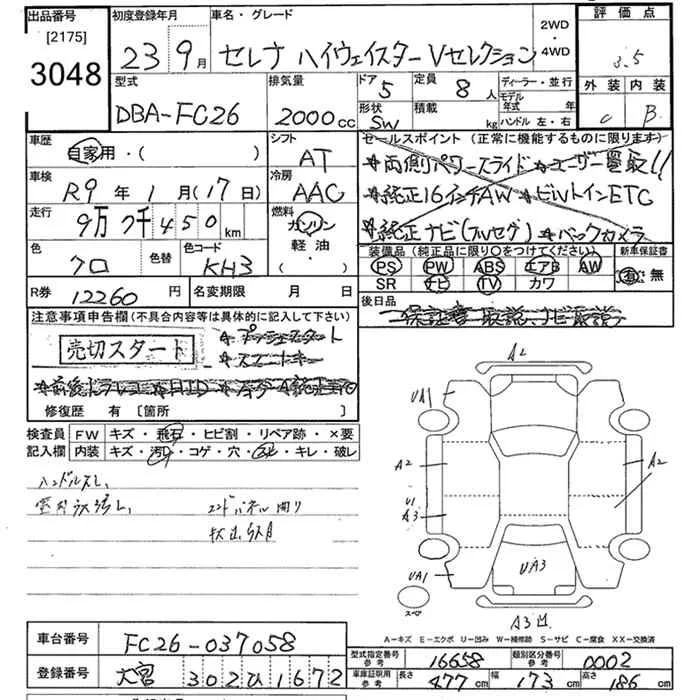 出品番号
[2175]
3048
初度登録年月
23 9月
車名・グレード
セレナ ハイウェイスター Vセレクション
2WD
・
4WD
評価点
3.5
外装 内装
C B
型式
DBA-FC26
排気量
2000cc
ドア
5
定員
8人
形状
SW
積載
kg
ディーラー・並行
モデル年式 年
ハンドル 左・右
車歴
自家用・( )
シフト
AT
車検
R9年1月(17日)
冷房
AAC
走行
9万7千450km
燃料
ガソリン
軽油・
( )
色
クロ
色替
色コード
KH3
R券
12260円
名変期限 月 日
セールスポイント(正常に機能するものに限ります)
☆両側パワースライド ☆ユーザー買取!!
☆純正16インチAW ☆ビルトインETC
☆純正ナビ(フルセグ) ☆バックカメラ
装備品(純正品に限り○をつけてください)
PS PW ABS エアB AW
SR ナビ TV カワ
新車保証書
有・無
後日品
保証書 取説 ナビ取説
注意事項申告欄(不具合内容等は具体的に記入して下さい)
売切スタート
☆プッシュスタート
☆スマートキー
修復歴 有 [箇所 ]
検査員記入欄
FW キズ・飛石・ヒビ割・リペア跡・×要
内装 キズ・汚れ・コゲ・穴・スレ・キレ・破レ
ハンドルスレ
エンドパネル曲り
A2
UA1
A2
A2
U1
A3
UA1
UA3
A3凹
スペア
A-キズ E-エクボ U-凹み W-補修跡 S-サビ C-腐食 XX-交換済
車台番号
FC26-037058
登録番号
大宮 302ひ1672
型式指定番号
参考
16658
類別区分番号
参考
0002
車庫証明用
参考
長さ 477cm
幅 173cm
高さ 186cm